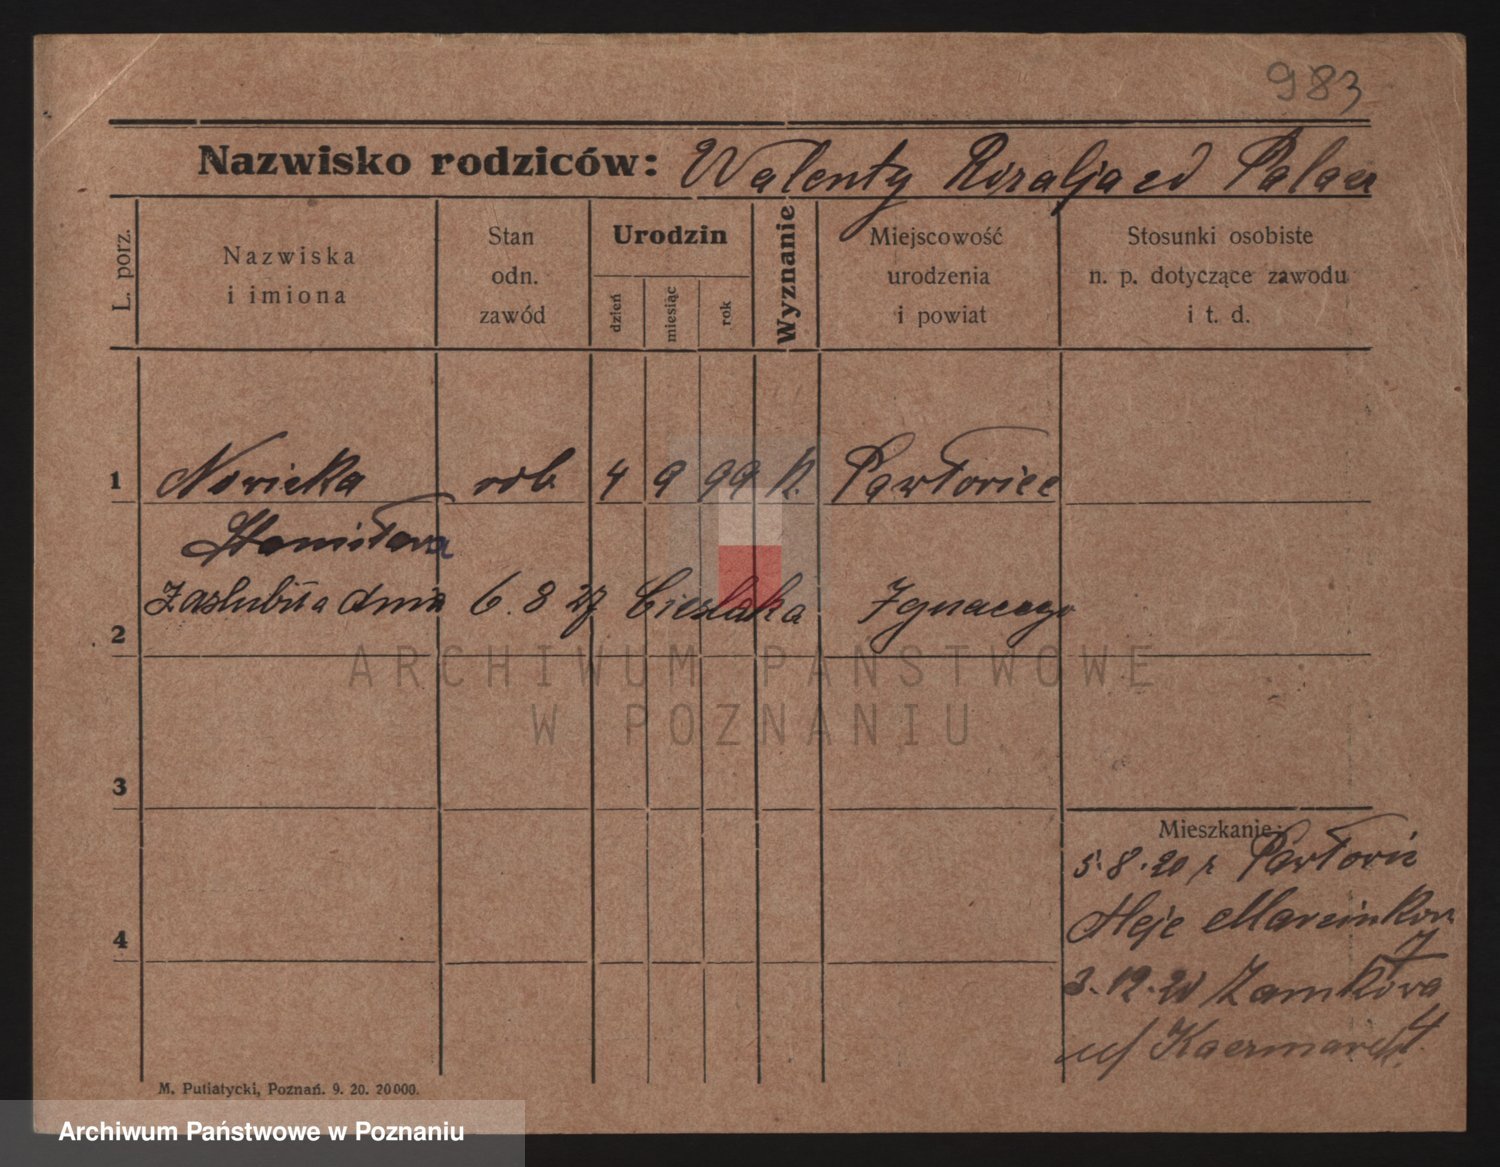 983
Nazwisko rodziców: Walenty Rozalja zd Palacz
L. porz.
Nazwiska
i imiona
Stan
odn.
zawód
Urodzin
dzień
miesiąc
rok
Wyznanie
Miejscowość
urodzenia
i powiat
Stosunki osobiste
n. p. dotyczące zawodu
i t. d.
1 Nowicka rob. 4 9 99 k. Pawłowice
Stanisława
zaślubiła dnia 6. 8 27 Cieslaka Ignacego
2
3
4
Mieszkanie:
5.8.20 r Pawłowic
Aleje Marcinkow
7
3.12.20 Zamkowa
4
u/ Kaczmarek
M. Putiatycki, Poznań. 9. 20. 20000.
ARCHIWUM PAŃSTWOWE
W POZNANIU
Archiwum Państwowe w Poznaniu